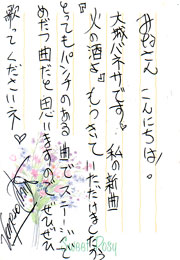 みなさん こんにちは!
大城バネサです♡ 私の新曲
『火の酒よ』もうきいていただけましたか?
とってもパンチのある曲でステージで
めだつ曲だと思いますのでぜひぜひ
歌ってくださいネ〜
Sweet Rosy